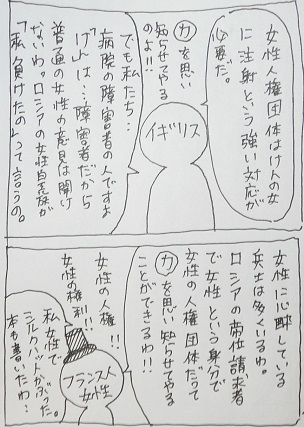 女性人権団体はけんの女
に注射という強い対応が
必要だ。
力を思い
知らせてやる
のよ!!
イギリス
でも私たち…
病院の障害者の人ですよ
「げんは…障害者だから
普通の女性の意見は聞け
ないわ。ロシアの女性皇族が
「私負けたの」って言うの。
女性に心酔している
兵士は多くいるわ。
ロシアの帝位請求者
で女性という身分で
女性の人権団体だって
力を思い知らせてやる
ことができるわ!!
女性の人権!!
女性の権利!!
フランス人
女性
私女性で
シルクハットかぶった。
本も書いたわ…